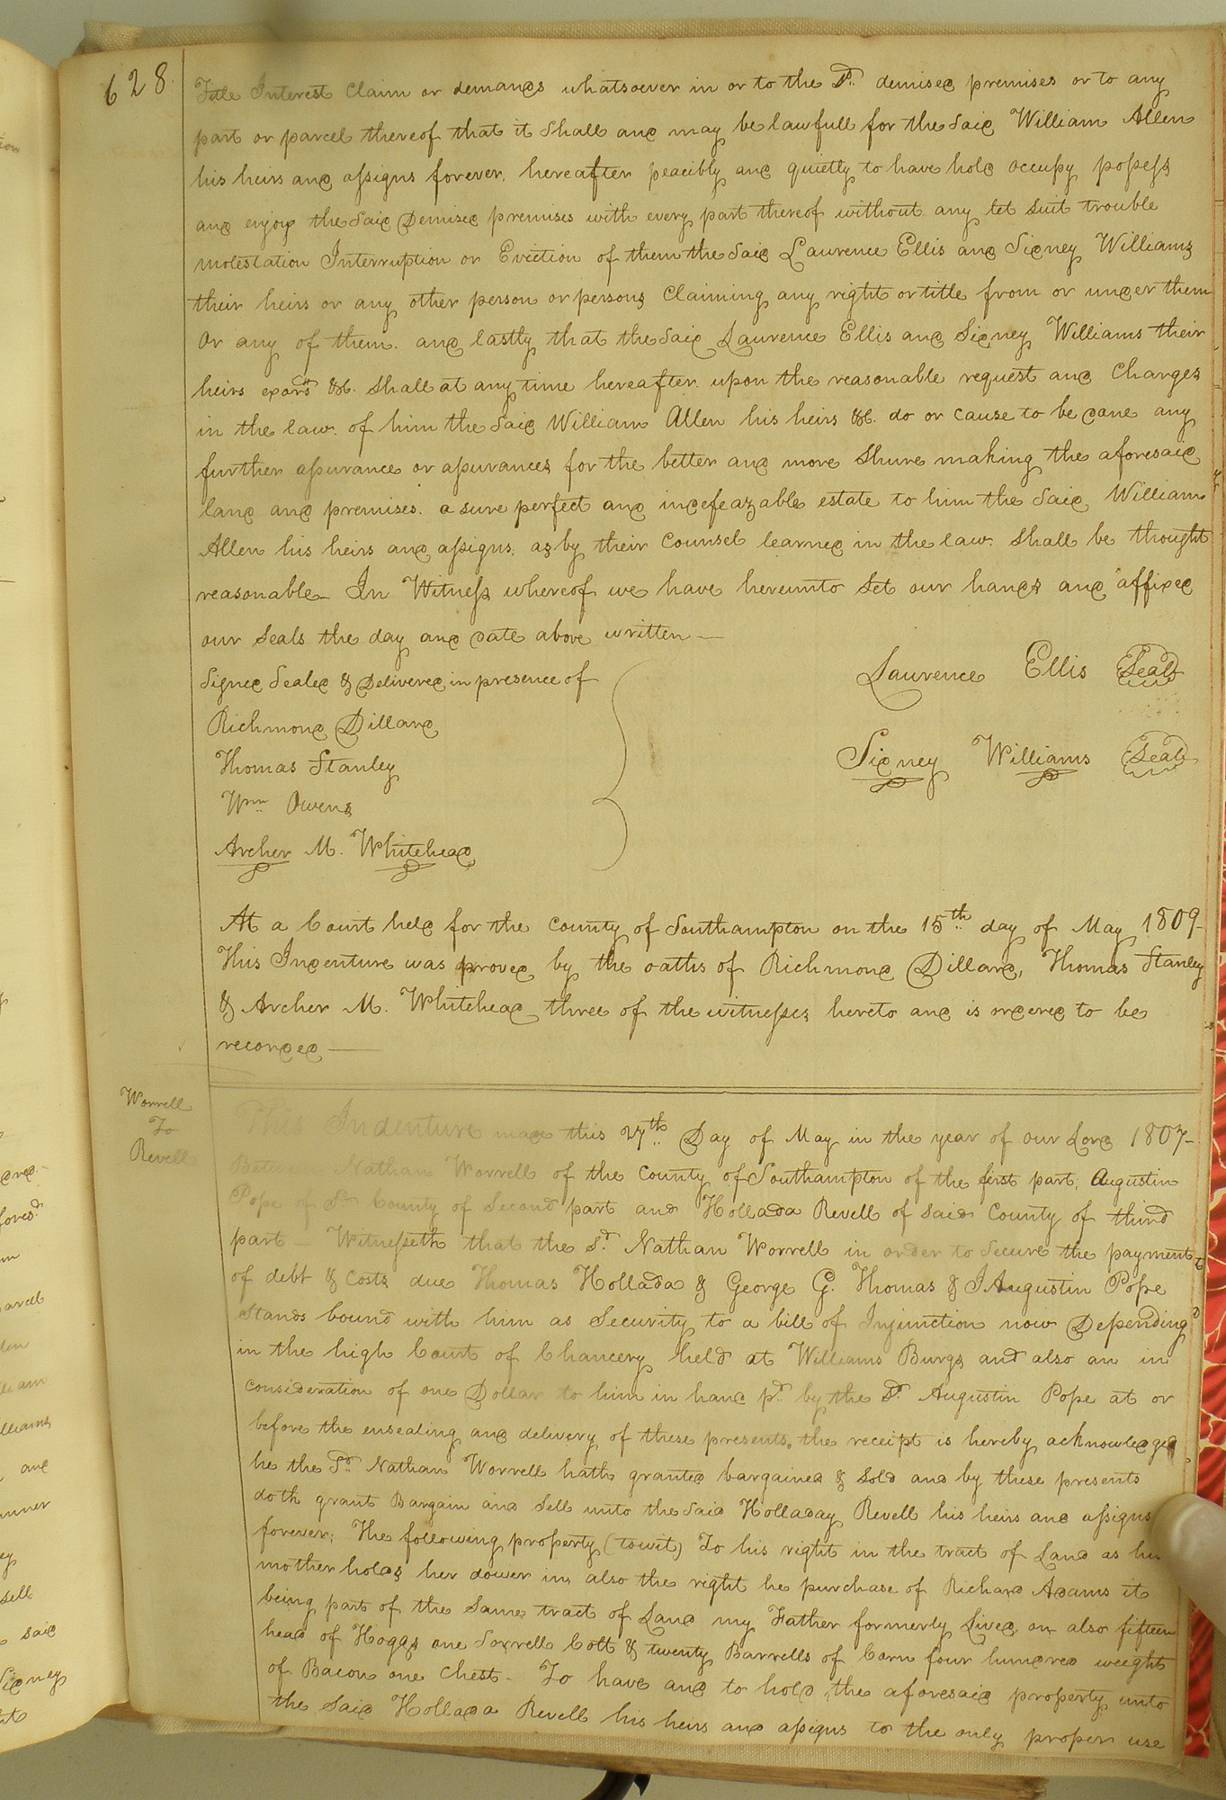 628
Title Interest Claim or demands whatsoever in or to the Sd. demised premises or to any
part or parcel thereof that it shall and may be lawfull for the Said William Allen
his heirs and assigns forever. hereafter peacibly and quietly to have hold occupy possess
and enjoy the Said Demised premises with every part thereof without any let Suit trouble
molestation Interruption or Eviction of them the Said Laurence Ellis and Sidney Williams
their heirs or any other person or persons Claiming any right or title from or under them
Or any of them. and lastly that the Said Laurence Ellis and Sidney Williams their
heirs exors &c. Shall at any time hereafter upon the reasonable request and Charges
in the law. of him the Said William Allen his heirs &c. do or cause to be done any
further assurance or assurances for the better and more Shure making the aforesaid
land and premises. a sure perfect and indefeazable estate to him the Said William
Allen his heirs and assigns. as by their Counsel learned in the law. Shall be thought
reasonable- In Witness whereof we have hereunto Set our hands and affixed
our Seals the day and date above written —
Signed Sealed & Delivered in presence of
Richmond Dillard
Thomas Stanley
Wm Owens
Archer M. Whitehead
Laurence Ellis Seal
Sidney Williams Seal
At a Court held for the County of Southampton on the 15th day of May 1809-
This Indenture was proved by the oaths of Richmond Dillard, Thomas Stanley
& Archer M. Whitehead three of the witnesses hereto and is ordered to be
recorded —
Worrell
To
Revell
This Indenture made this 27th Day of May in the year of our Lord 1807-
Between Nathan Worrell of the County of Southampton of the first part, Augustin
Pope of Sd County of Second part and Hollada Revell of Said County of third
part — Witnesseth that the Sd. Nathan Worrell in order to Secure the payment
of debt & Costs due Thomas Hollada & George G. Thomas & Augustin Pope
Stands bound with him as Security to a bill of Injunction now Depending
in the high Court of Chancery held at Williams Burgs and also an in
Consideration of one Dollar to him in hand pd. by the Sd. Augustin Pope at or
before the ensealing and delivery of these presents, the receipt is hereby acknowledged
he the Sd Nathan Worrell hath granted bargained & Sold and by these presents
doth grant Bargain and Sell unto the Said Holladay Revell his heirs and assigns
forever; The following property (towit) To his right in the tract of Land as his
mother holds her dower in, also the right he purchase of Richard Adams it
being part of the Same tract of Land my Father formerly Lived on also fifteen
head of Hoggs one Sorrell Colt & twenty Barrells of Corn four hundred weight
of Bacon one Chest- To have and to hold the aforesaid property unto
the Said Hollada Revell his heirs and assigns to the only proper use